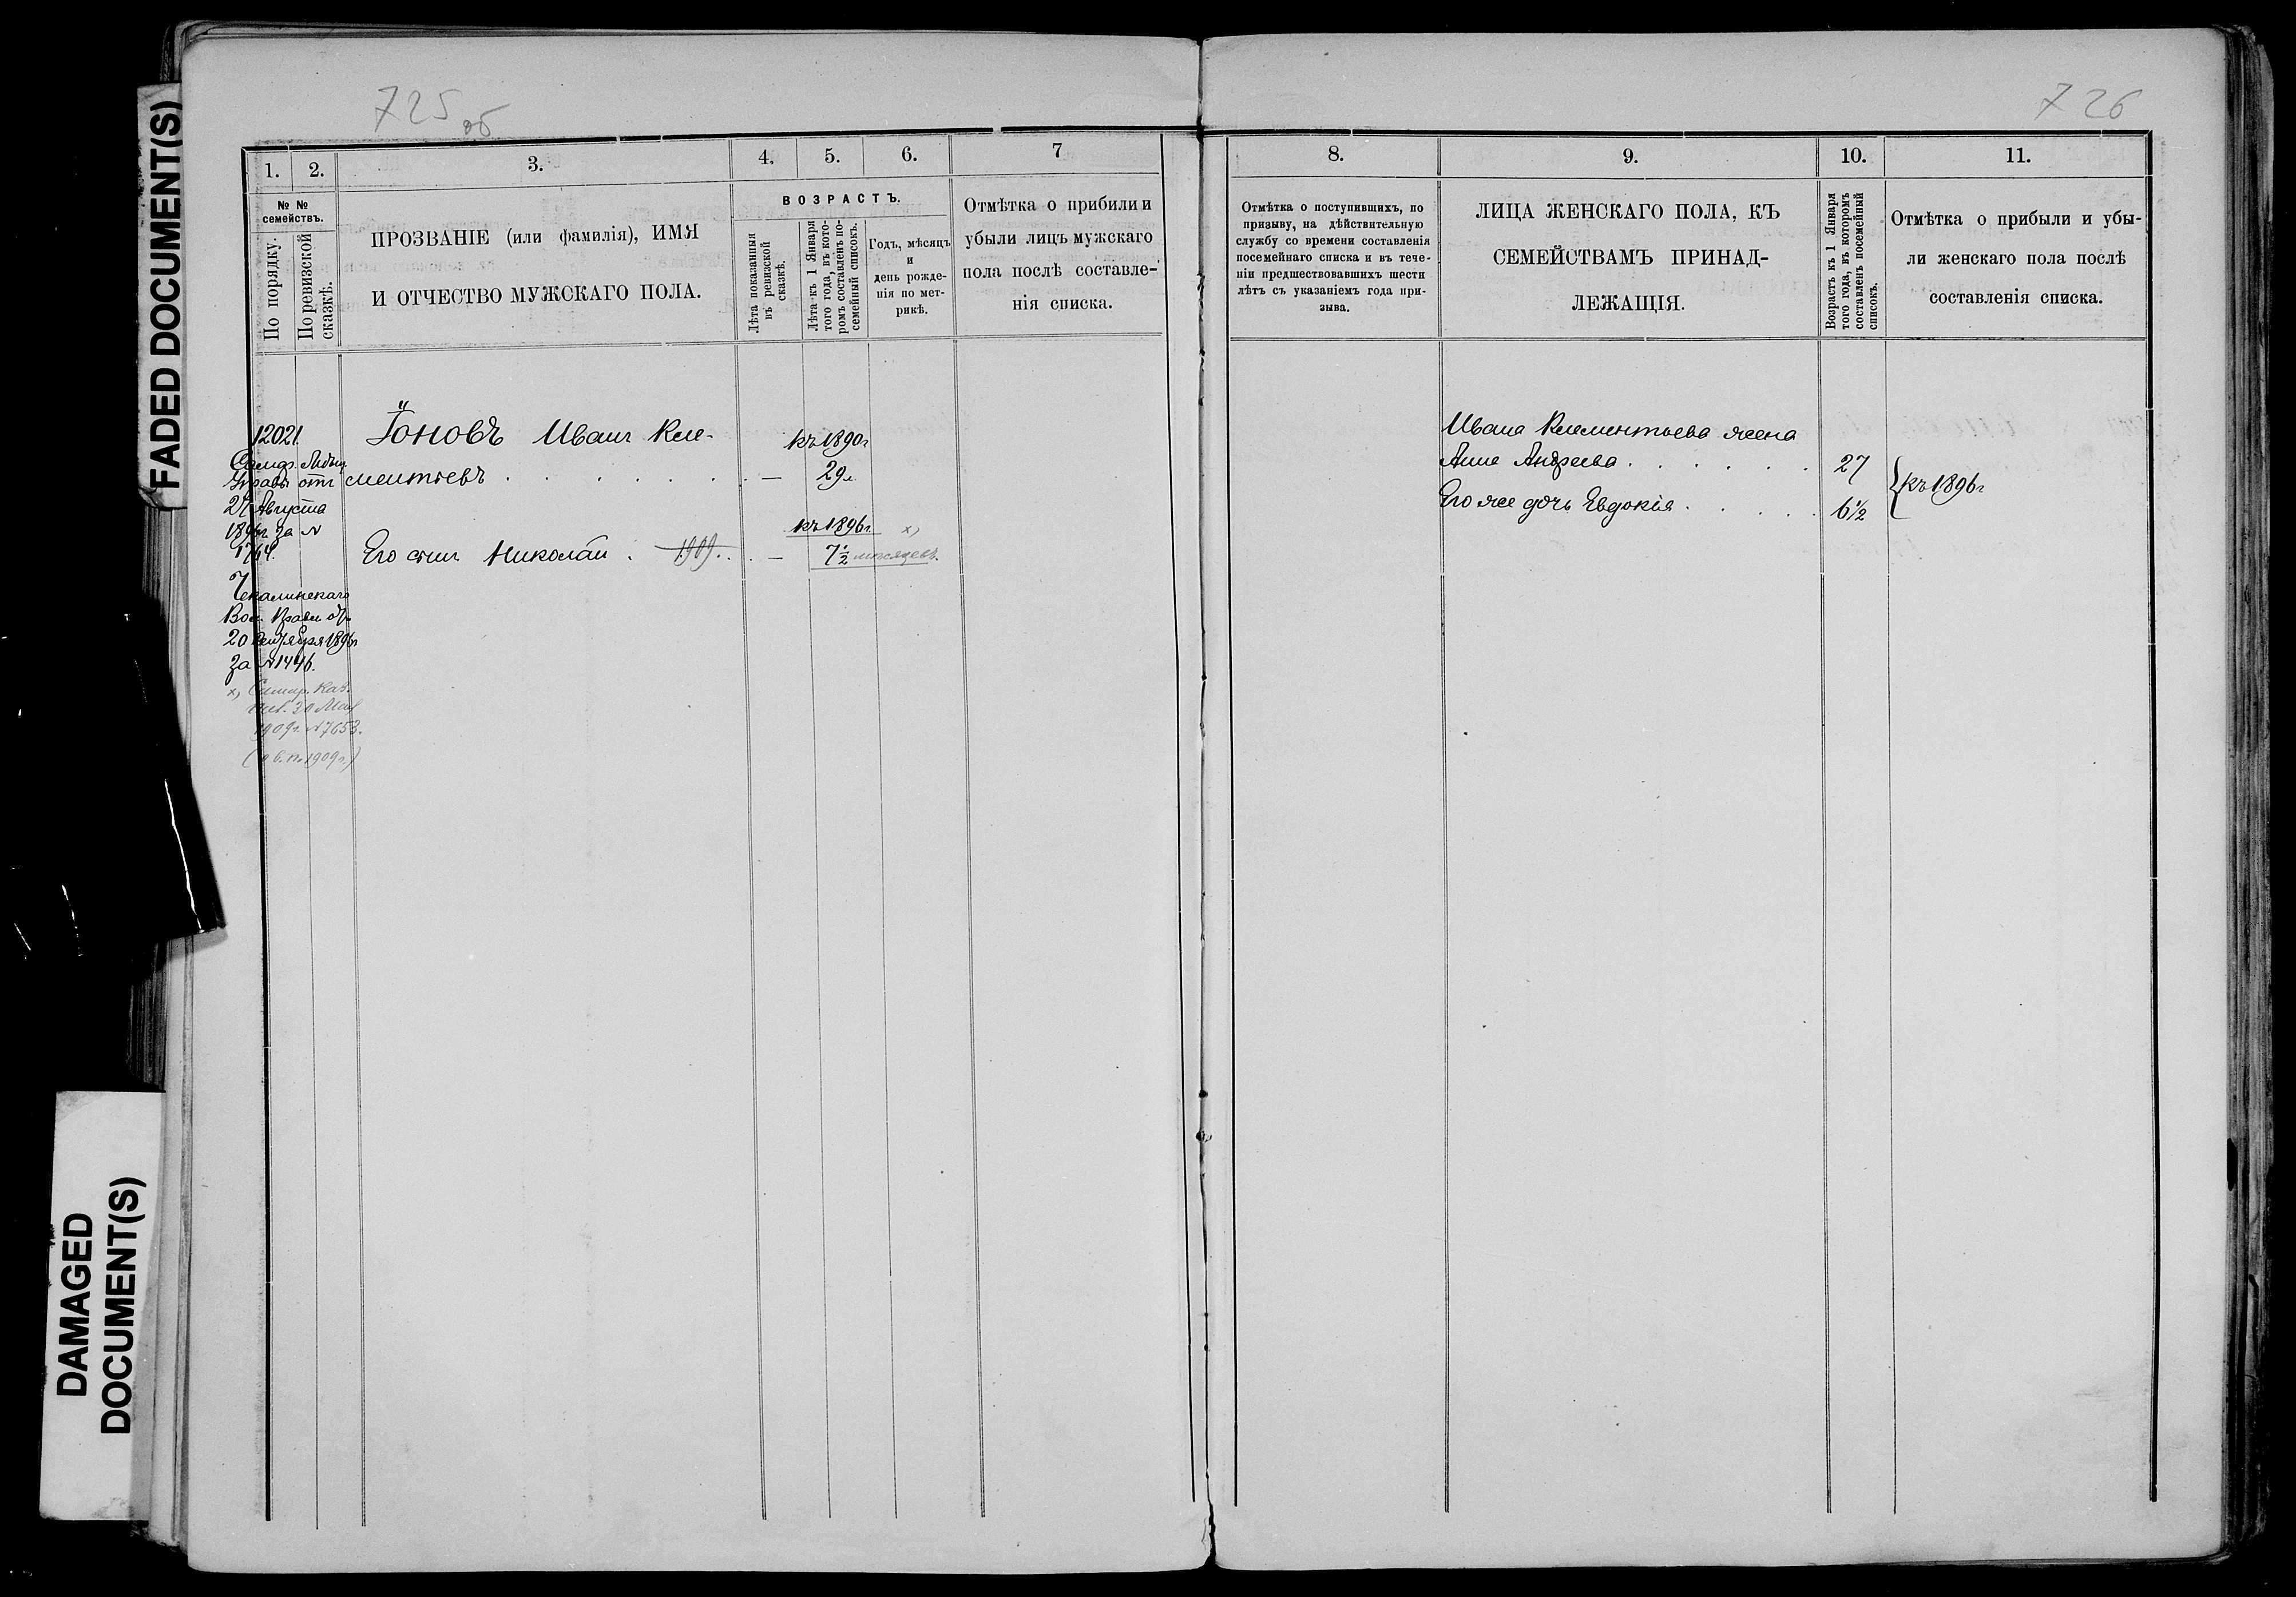 FADED DOCUMENT(S)
DAMAGED
DOCUMENT(S)
725 об
1.
2.
3.
4.
5.
6.
7
№ №
семействъ.
По порядку.
По ревизской
сказкѣ.
ПРОЗВАНІЕ (или фамилія), ИМЯ
И ОТЧЕСТВО МУЖСКАГО ПОЛА.
ВОЗРАСТЪ.
Лѣта показанныя
въ ревизской
сказкѣ.
Лѣта къ 1 Января
того года, въ кото-
ромъ составленъ по-
семейный списокъ.
Годъ, мѣсяцъ
и
день рожде-
нія по мет-
рикѣ.
Отмѣтка о прибили и
убыли лицъ мужскаго
пола послѣ составле-
нія списка.
12021.
Управы отъ
Августа
за №
1764.
Чекалинскаго
Вол. Правл отъ
20 Сентября 1896г
за №1446.
х) Самар. Каз.
20 Мая
1909г. №7653.
1909г.)
Іоновъ Иванъ Кле-
ментьевъ . . . . . . . —
къ 1890г
29л.
Его сынъ Николай . 1909 . . —
къ 1896г. х)
7½ мѣсяцевъ.
726
8.
9.
10.
11.
Отмѣтка о поступившихъ, по
призыву, на дѣйствительную
службу со времени составленія
посемейнаго списка и въ тече-
ніи предшествовавшихъ шести
лѣтъ съ указаніемъ года при-
зыва.
ЛИЦА ЖЕНСКАГО ПОЛА, КЪ
СЕМЕЙСТВАМЪ ПРИНАД-
ЛЕЖАЩІЯ.
Возрастъ къ 1 Января
того года, въ которомъ
составленъ посемейный
списокъ.
Отмѣтка о прибыли и убы-
ли женскаго пола послѣ
составленія списка.
Ивана Клементьева жена
Анна Андреева . . . . . . 27
Его же дочь Евдокія . . . . . 6½
къ 1896г